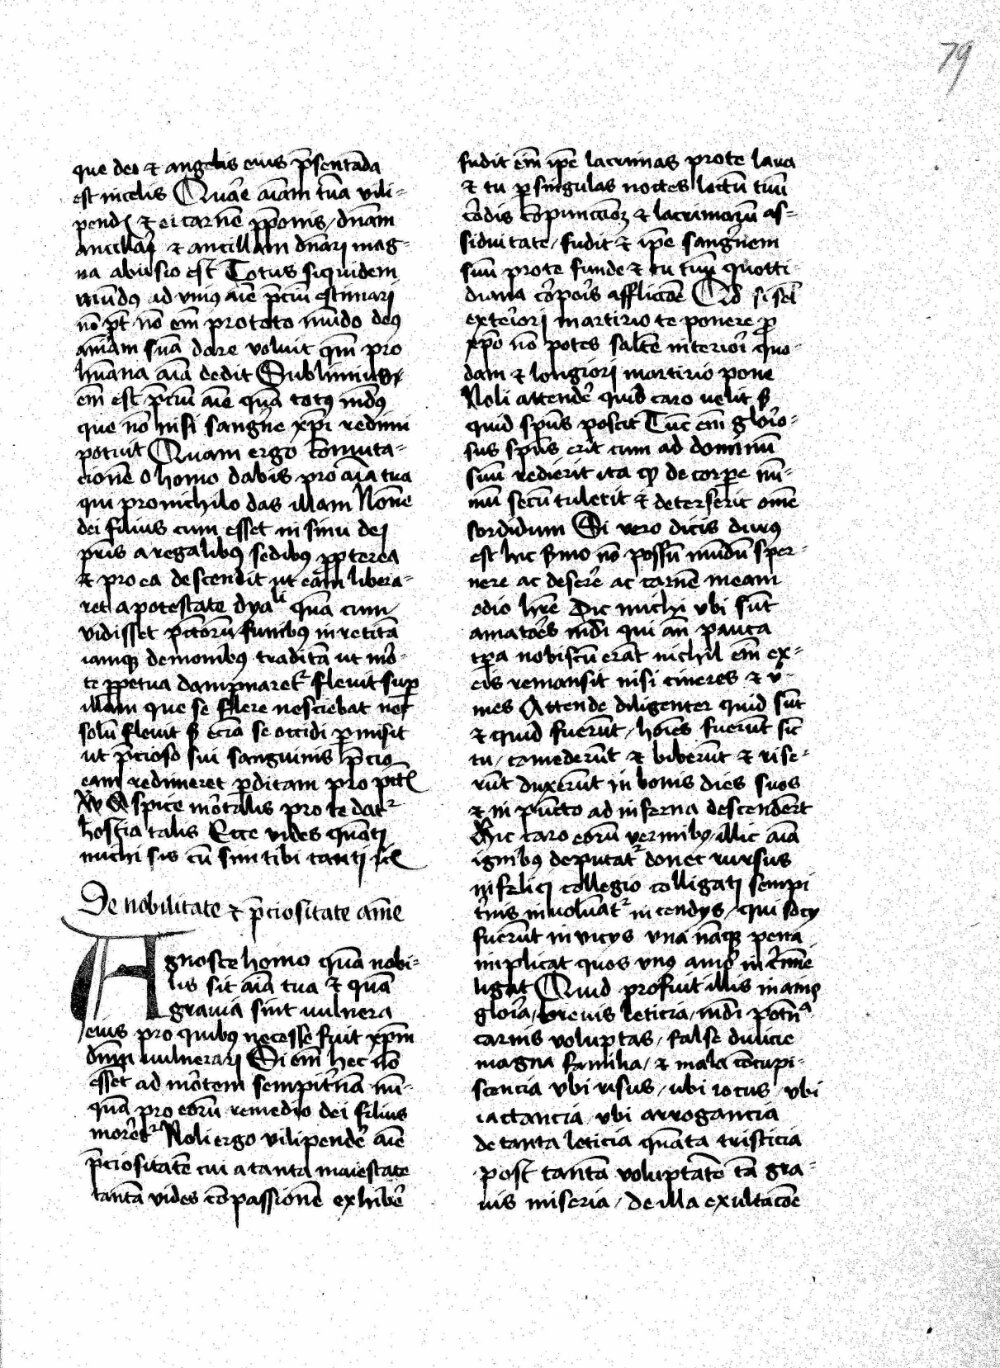 79
que deo et angelis eius p̄sentāda
est in celis Quare aīam tuā vili-
pendis et ei carnē p̄ponis / dn̄am
ancillā et ancillam dn̄ari mag-
na abusio est Totus siquidem
mūdꝯ ad vniꝯ aīe p̄ciū estimari
nō pt̄ nō em̄ pro toto mūdo deꝯ
aīam suā dare voluit qm̄ pro
humana aīa dedit Sublimius
em̄ est p̄ciū aīe quā totꝯ mūdꝯ
que nō nisi sangīne xp̄i redimi
potuit Quam ergo cōmuta-
cionē o homo dabis pro aīa tua
qui pro nichilo das illam Nonne
dei filius cum esset in sinu dei
pr̄is a regalibꝯ sedibꝯ ꝓpterea
et pro ea descendit ut eam libera-
ret a potestate dyaˡⁱ quā cum
vidisset pc̄torū funibꝯ irretitā
iamqꝫ demonibꝯ traditā ut mor-
te ꝑpetua dampnaretᷣ fleuit suꝑ
illam que se flere nesciebat nec
solū fleuit sꝫ eciā se occidi ꝑmisit
ut p̄cioso sui sanguinis p̄cio
eam redimeret ꝑditam pro pctī
Aspice mortalis pro te datᷣ
hostia talis Ecce vides quāti
michi sis cū sim tibi tanti
De nobilitate et p̄ciositate aīme
Agnosce homo quā nobi-
lis sit aīa tua et quā
grauia sint vulnera
eius pro quibus necesse fuit xp̄m
dnm̄ vulnerari Si em̄ hec nō
esset ad mortem sempit̄nā nū-
quā pro eorū remedio dei filius
moretᷣ Noli ergo vilipendē aīe
p̄ciositatē cui a tanta maiestate
tantā vides cōpassionē exhibē
fudit em̄ ipē lacrimas pro te laua
et tu ꝑ singulas noctes lectū tuū
cordis cōpunccioꝫ et lacrimarū as-
siduitate / fudit et ipē sangīnem
suū pro te funde et tu tuū quotti-
diana corporis afflicc̄oe Qd si sel̄
exteriori martirio te ponere ꝓ
xp̄o nō potes saltē interiori quo-
dam et longiori martirio pone
Noli attendē quid caro velit sꝫ
quid spūs poscit Tūc em̄ glorio-
sus spūs erit cum ad dominū
suū redierit ita qꝫ de corꝑe nī-
mū secū tulerit et deterserit omē
sordidum Si vero dicis durꝯ
est hic sermo nō possū mūdū sper-
nere ac deserē ac carnē meam
odio hr̄e Dic michi vbi sūt
amatores mūdi qui an̄ pauca
tp̄a nobiscū erāt nichil em̄ ex
eis remansit nisi cineres et v-
mes Attende diligenter quid sūt
et quid fuerūt / hoīes fuerūt sic
tu / comederūt et biberūt et rise-
rūt duxerūt in bonis dies suos
et in pūcto ad inferna descenderūt
Hic caro eorū vermibꝯ illic aīa
ignibꝯ deputatᷣ donec rursus
infelici collegio colligati sempi
t̄nis inuoluātᷣ incendijs / qui socij
fuerūt in vicijs vna nāqꝫ pena
implicat quos vnꝯ amor in crīme
ligat Quid profuit illis inanis
gloria / breuis leticia / mūdi potēᵃ
carnis voluptas / false diuicie
magna familia / et mala cōcupi-
scencia vbi risus / ubi iocus / vbi
iactancia vbi arrogancia
de tanta leticia quāta tristicia
post tantā voluptatē tā gra-
uis miseria / de illa exultac̄oe